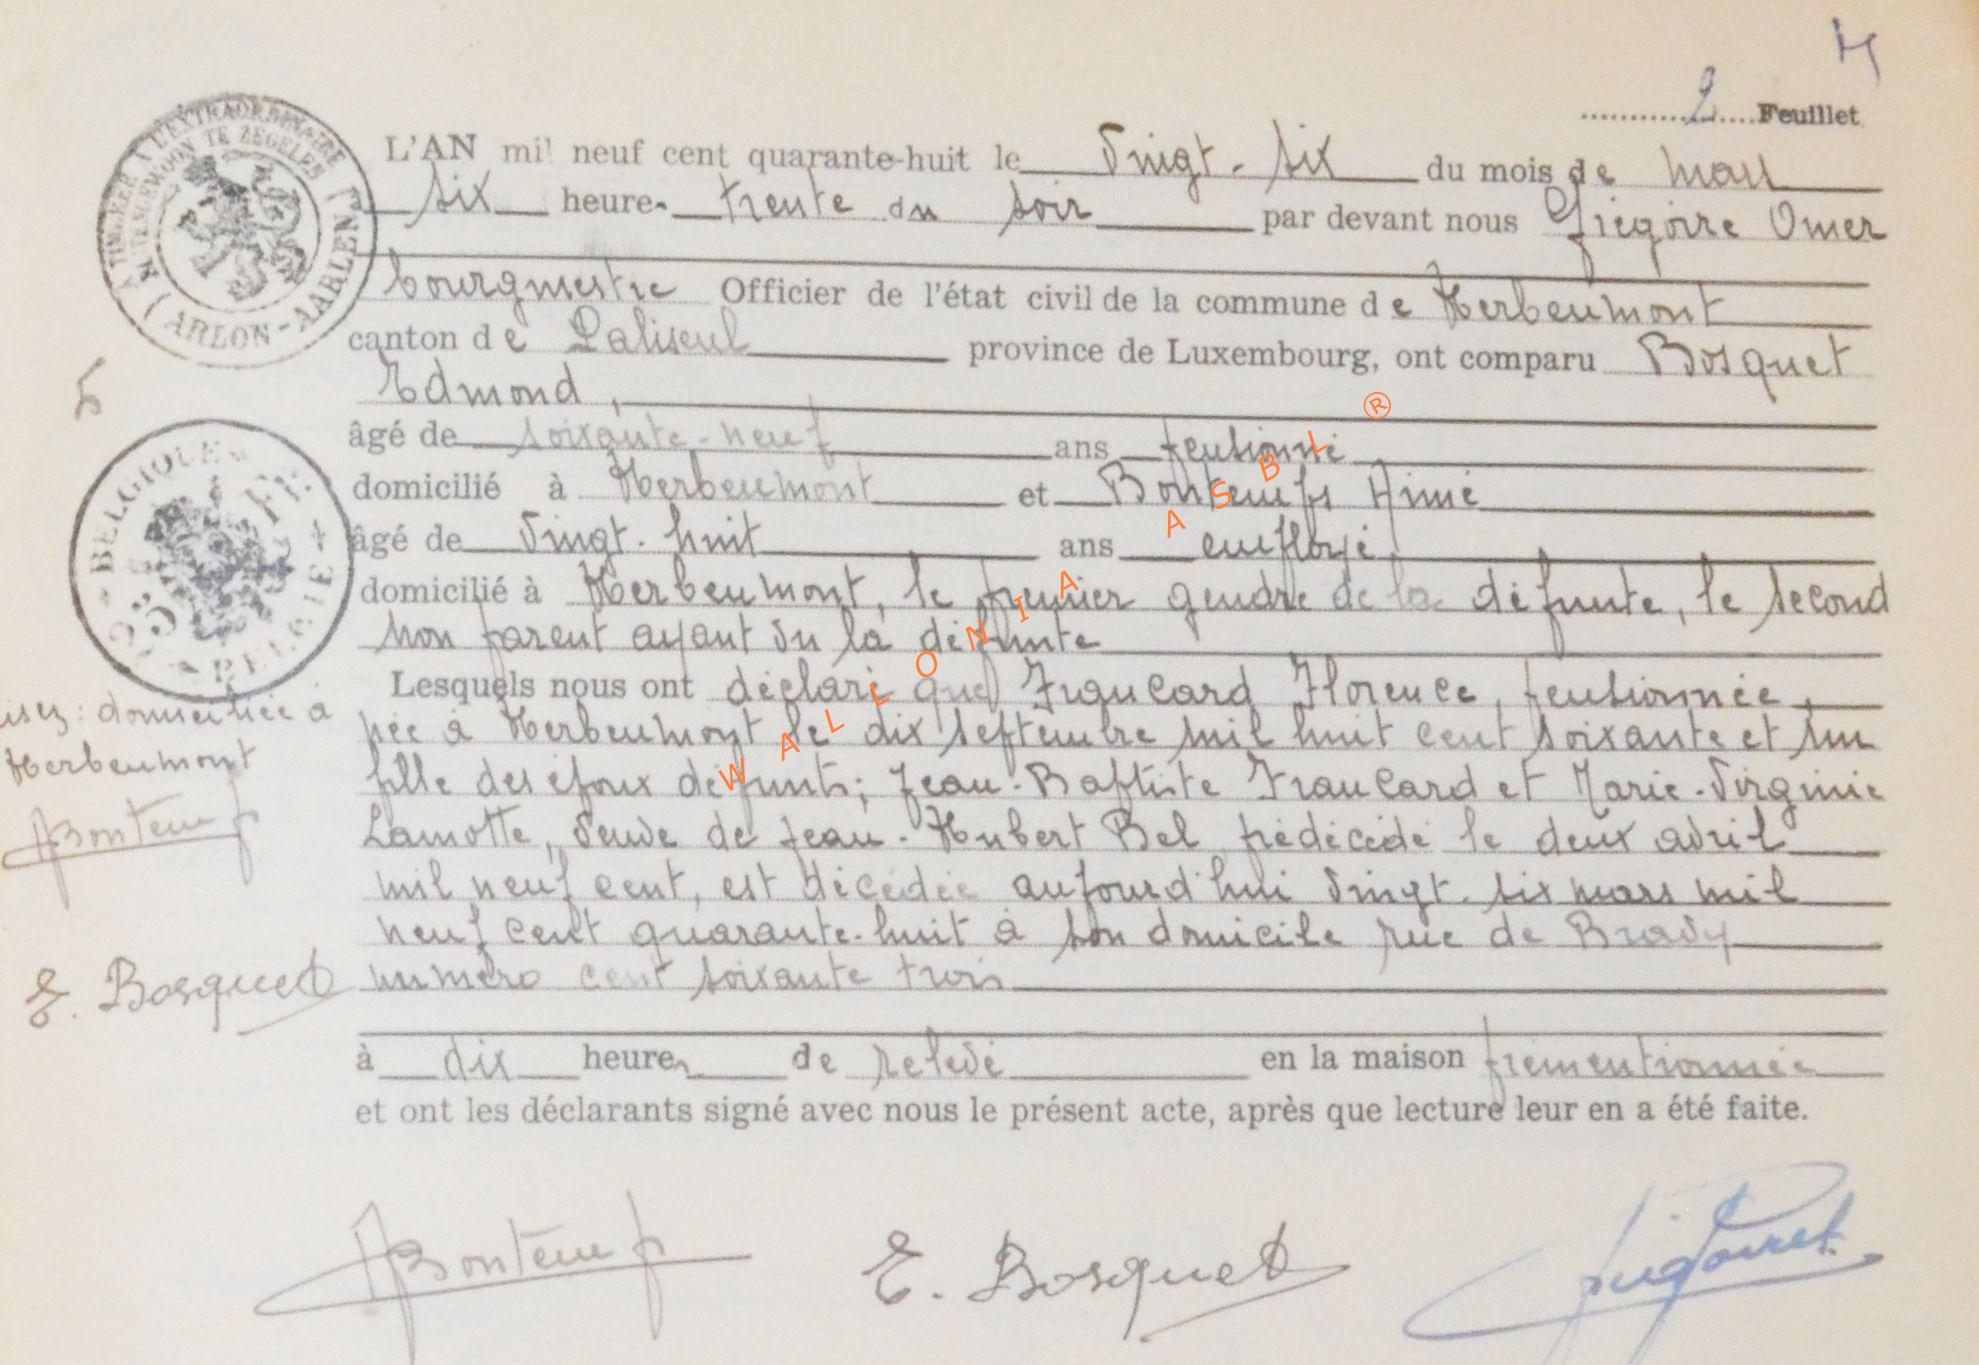 4
2 Feuillet
TIMBRER A L'EXTRAORDINAIRE
BUITENGEWOON TE ZEGELEN
( ARLON-AARLEN )
L'AN mil neuf cent quarante-huit le vingt-six du mois de mars
six heures trente du soir par devant nous Grégoire Omer
bourgmestre Officier de l'état civil de la commune de Herbeumont
canton de Paliseul province de Luxembourg, ont comparu Bosquet
Edmond,
5
âgé de soixante-neuf ans pensionné
domicilié à Herbeumont et Bontemps Aimé
âgé de vingt-huit ans employé
domicilié à Herbeumont, le premier gendre de la défunte, le second
non parent ayant vu la défunte
BELGIQUE
5 FR
BELGIE
Lesquels nous ont déclaré que Framcard Florence, pensionnée,
née à Herbeumont le dix septembre mil huit cent soixante et un
fille des époux défunts; Jean-Baptiste Framcard et Marie-Virginie
Lamotte, veuve de Jean-Hubert Bel prédécédé le deux avril
mil neuf cent, est décédée aujourd'hui vingt-six mars mil
neuf cent quarante-huit à son domicile rue de Bravy
numéro cent soixante trois
à dix heures de relevé en la maison prémentionnée
et ont les déclarants signé avec nous le présent acte, après que lecture leur en a été faite.
domiciliée à
Herbeumont
ABontemps
E. Bosquet
ABontemps E. Bosquet
WALLONIA ASBL ®